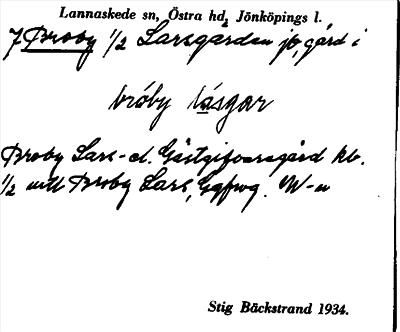 Lannaskede sn, Östra hd, Jönköpings l.
7 Broby 1/2 Larsgården jb, gård i
bróby lásgar
Broby Lars- el. Gästgifvaregård kb.
1/2 mtl Broby Lars,
Stig Bäckstrand 1934.